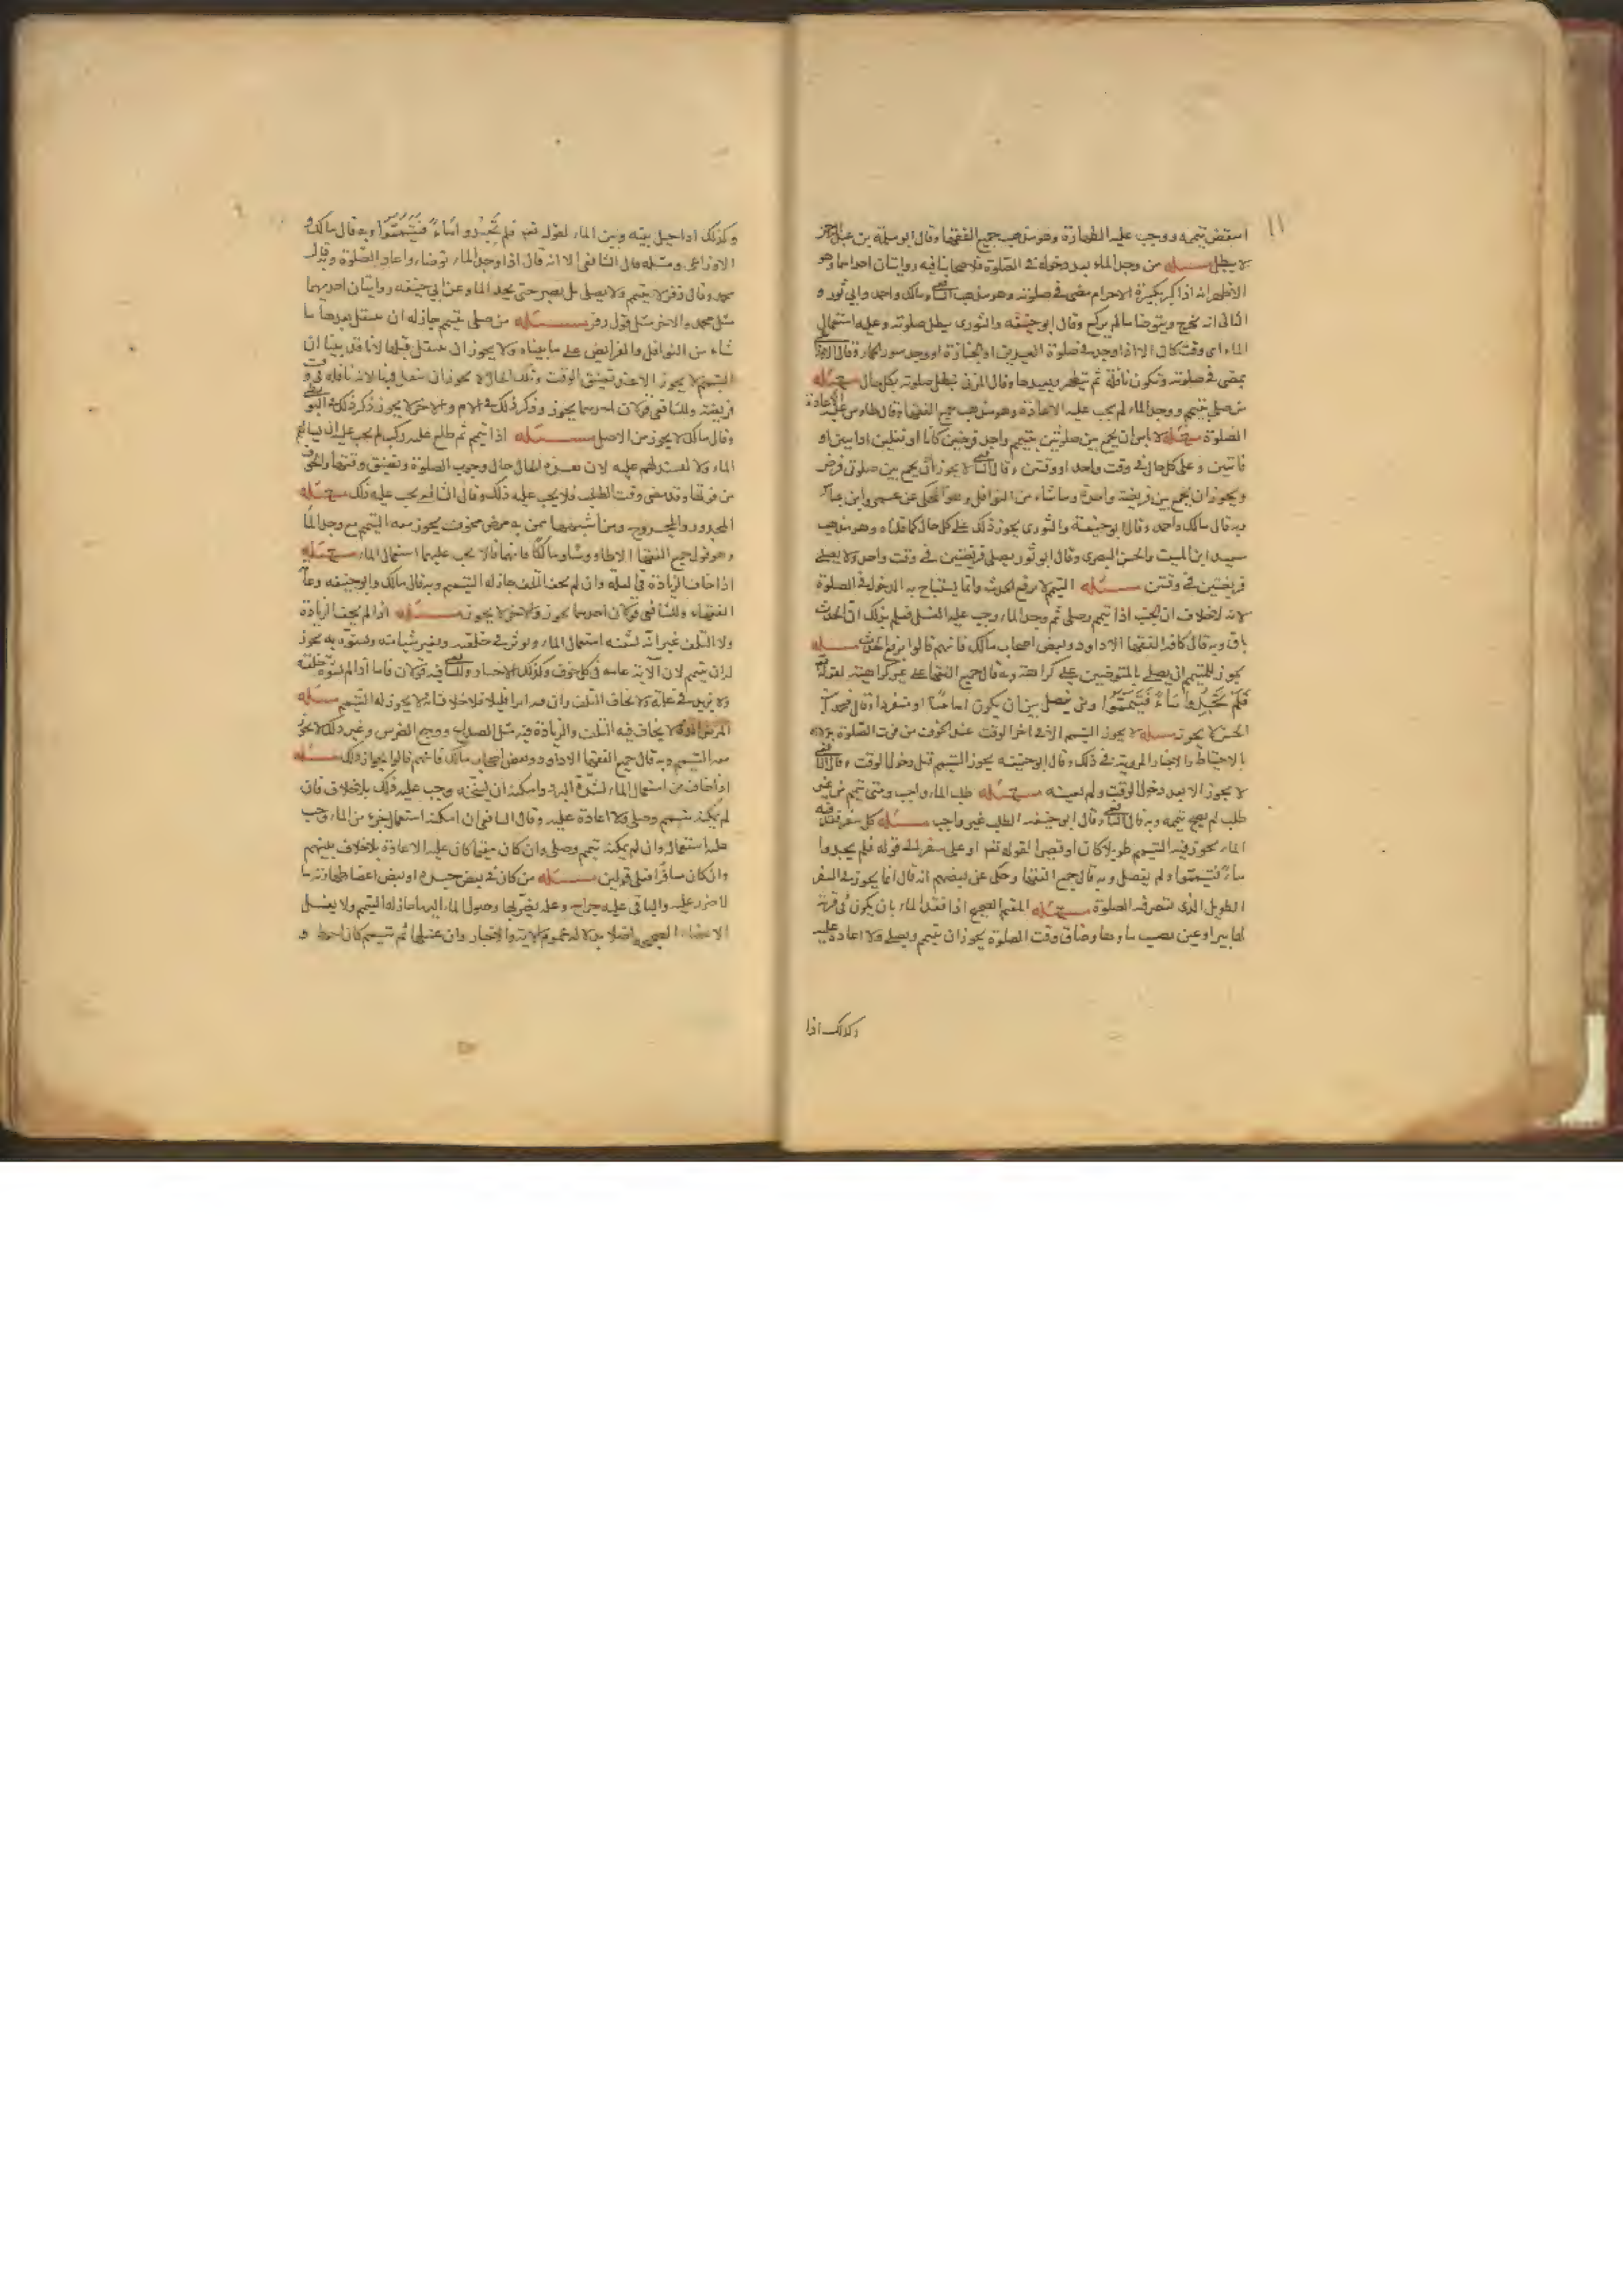 ١١
استقض تيممه ووجب عليه الطهارة وهو مذهب جميع الفقها وقال ابو سلمة بن عبد الرحمن
لا يبطل مسئله من وجد الماء بعد دخوله فى الصلوة فلاصحابنا فيه روايتان احديهما وهو
الاظهر انه اذا كبر تكبيرة الاحرام مضى فى صلوته وهو مذهب الشافعى ومالك واحمد وابى ثور و
الثانى انه يخرج ويتوضا ما لم يركع وقال ابو حنيفة والثورى يبطل صلوته وعليه استعمال
الماء اى وقت كان الا اذا وجد فى صلوة العيدين او الجنازة او وجد سور الحمار وقال الاوزاعى
يمضى فى صلوته وتكون نافلة ثم يتطهر ويعيدها وقال المزنى تبطل صلوته بكل حال مسئله
من صلى بتيمم ووجد الماء لم يجب عليه الاعادة وهو مذهب جميع الفقها وقال طاوس عليه الاعادة
مسئله لا باس ان يجمع بين صلوتين بتيمم واحد فرضين كانا او نفلين ادايين او
فائتين وعلى كل حال فى وقت واحد او وقتين وقال الشافعى لا يجوز ان يجمع بين صلوتى فرض
ويجوز ان يجمع بين فريضة واحدة وما شاء من النوافل وهو المحكى عن عمرو وابن عباس
وبه قال مالك واحمد وقال ابو حنيفة والثورى يجوز ذلك على كل حال كما قلناه وهو مذهب
سعيد ابن المسيب والحسن البصرى وقال ابو ثور يصلى فريضتين فى وقت واحد ولا يصلى
فريضتين فى وقتين مسئله التيمم لا يرفع الحدث وانما يستباح به الدخول فى الصلوة
لانه لا خلاف ان الجنب اذا تيمم وصلى ثم وجد الماء وجب عليه الغسل فعلم بذلك ان الحدث
باق وبه قال كافة الفقها الا داود وبعض اصحاب مالك فانهم قالوا يرفع الحدث مسئله
يجوز للمتيمم ان يصلى بالمتوضيين على كراهة وبه قال جميع الفقها على غير كراهية لقوله تعالى
فَلَمْ تَجِدُوا مَاءً فَتَيَمَّمُوا ولم يفصل بين ان يكون اماما او منفردا وقال محمد بن
الحسن لا يجوز مسئله لا يجوز التيمم الا فى اخر الوقت عند الخوف من فوت الصلوة
الاحتياط والاخبار المروية فى ذلك وقال ابو حنيفة يجوز التيمم قبل دخول الوقت وقال الشافعى
لا يجوز الا بعد دخول الوقت ولم يعينه مسئله طلب الماء واجب ومتى تيمم من غير
طلب لم يصح تيممه وبه قال الشافعى وقال ابو حنيفة الطلب غير واجب مسئله كل سفر فقد فيه
الماء يجوز فيه التيمم طويلا كان او قصيرا لقوله تعالى او على سفر الى قوله فلم يجدوا
ماءً فتيمموا ولم يفصل وبه قال جميع الفقها وحكى عن بعضهم انه قال انما يجوز فى السفر
الطويل الذى تقصر فيه الصلوة مسئله المقيم الصحيح اذا فقد الماء بان يكون فى قرية
لها بير او عين نصب ماءوها وضاق وقت الصلوة يجوز ان يتيمم ويصلى ولا اعادة عليه
وكذلك اذا
وكذلك اذا حيل بينه وبين الماء لقوله تعالى فلم تَجِدُوا مَاءً فَتَيَمَّمُوا وبه قال مالك و
الاوزاعى ومثله قال الشافعى الا انه قال اذا وجد الماء توضاء واعاد الصلوة وبه قال
محمد وقال زفر لا يتيمم ولا يصلى بل يصبر حتى يجد الماء وعن ابى حنيفه روايتان احديهما
مثل محمد والاخر مثل قول زفر مسئله من صلى بتيمم جاز له ان يتنفل بعدها ما
شاء من النوافل والفرائض على ما بيناه ولا يجوز ان يتنفل قبلها لانا قد بينا ان
التيمم لا يجوز الا عند تضيق الوقت وتلك الحال لا يجوز ان يتنفل فيها لانه نافلة فى وقت
فريضة وللشافعى قولان احدهما يجوز وذكر ذلك فى الام والاخر لا يجوز ذكر ذلك فى البويطى
وقال مالك لا يجوز من الاصل مسئله اذا تيمم ثم طلع عليه ركب لم يجب عليه ان يسالهم
الماء ولا لان هذه الحال حال وجوب الصلوة وتضيق وقتها والخوف
من فوتها وقد مضى وقت الطلب فلا يجب عليه ذلك وقال الشافعى يجب عليه ذلك مسئله
المجدور والمجروح ومن اشبههما ممن به مرض مخوف يجوز معه التيمم مع وجود الماء
وهو قول جميع الفقها الا طاووسًا ومالكًا فانهما قالا يجب عليهما استعمال الماء مسئله
اذا خاف الزيادة فى العلة وان لم يخف التلف جاز له التيمم وبه قال مالك وابو حنيفه وعامة
الفقهاء وللشافعى قولان احدهما يجوز والاخر لا يجوز مسئله اذا لم يخف الزيادة
ولا التلف غير انه يشينه استعمال الماء ويوثر فى خلقته ويغير شيا منه ويشوه به يجوز
له ان يتيمم لان الاية عامة فى كل خوف وكذلك الاخبار وللشافعى فيه قولان فاما اذا لم يشوه خلقته
ولا يزيد فى علته ولا يخاف التلف وان اثر اثرا قليلا فلا خلاف انه لا يجوز له التيمم مسئله
المرض الذى لا يخاف فيه التلف والزيادة فيه مثل الصداع ووجع الضرس وغير ذلك لا يجوز
معه التيمم وبه قال جميع الفقها الا داود وبعض اصحاب مالك فانهم قالوا بجواز ذلك مسئله
اذا خاف من استعمال الماء لشدة البرد وامكنه ان يسخنه وجب عليه ذلك بلا خلاف فان
لم يمكنه تيمم وصلى ولا اعادة عليه وقال الشافعى ان امكنه استعمال جزء من الماء وجب
عليه استعماله وان لم يمكنه تيمم وصلى وان كان مقيما كان عليه الاعادة بلا خلاف بينهم
وان كان مسافرا فعلى قولين مسئله من كان فى بعض جسده او بعض اعضا طهارته ما
لا ضرر عليه والباقى عليه جراح وعلة يضر بها وصول الماء اليها جاز له التيمم ولا يغسل
الاعضاء الصحيحة اصلا بدلالة عموم الاية والاخبار وان غسلها ثم تيمم كان احوط و